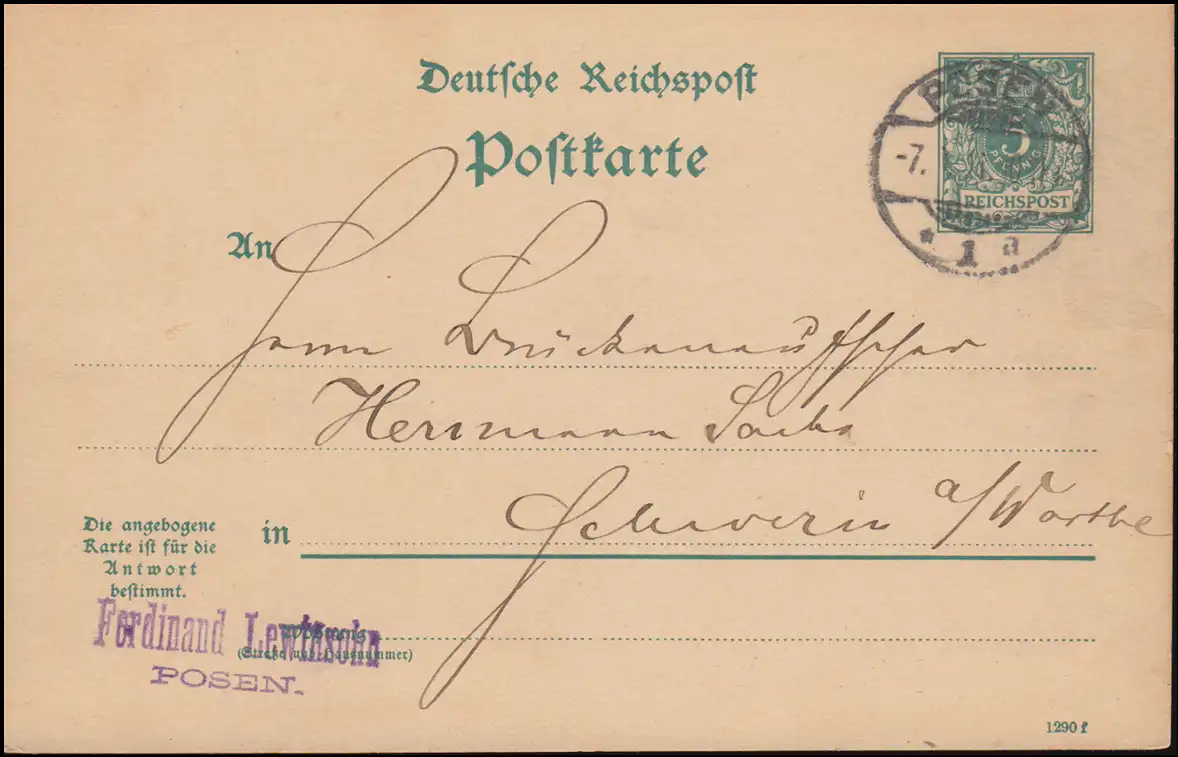 Deutsche Reichspost
Postkarte
POSEN
-7.
* 1 a
5
PFENNIG
REICHSPOST
An
Herrn
Herrmann Sachs
in Schwerin a/Warthe
Die angebogene
Karte ist für die
Antwort
bestimmt.
Ferdinand Lewinsohn
POSEN.
Wohnung
(Straße und Hausnummer)
1290 f